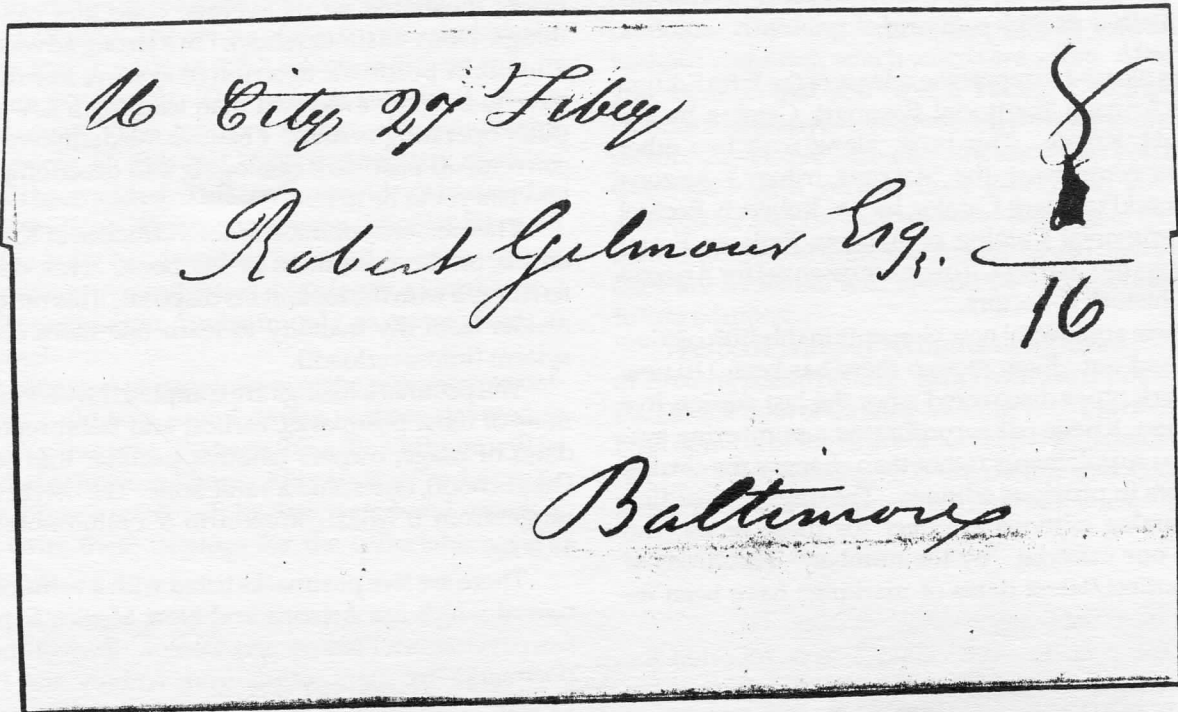 W City 27 Feby
8
Robert Gilmour Esq.
16
Baltimore